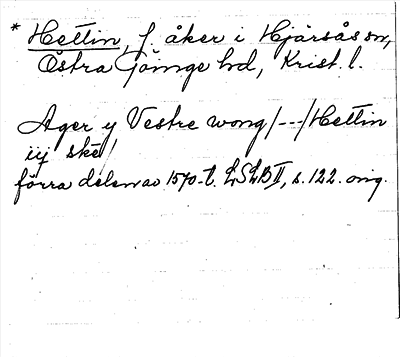 * Hettin, f. åker i Hjärsås sn,
Östra Göinge hd, Krist. l.
Ager y Vestre wong/---/Hettin
iij ske/
förra delen av 1570-t. LSLB II, s. 122. orig.